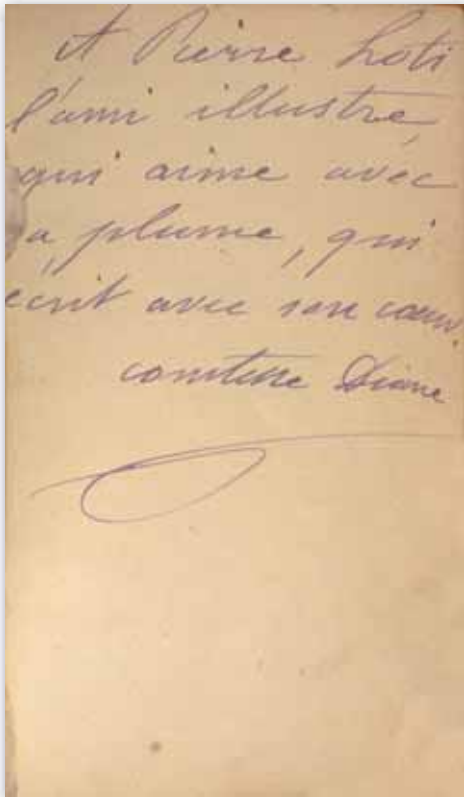 A Pierre Loti
l'ami illustre,
qui aime avec
sa plume, qui
écrit avec son cœur.
comtesse Diane